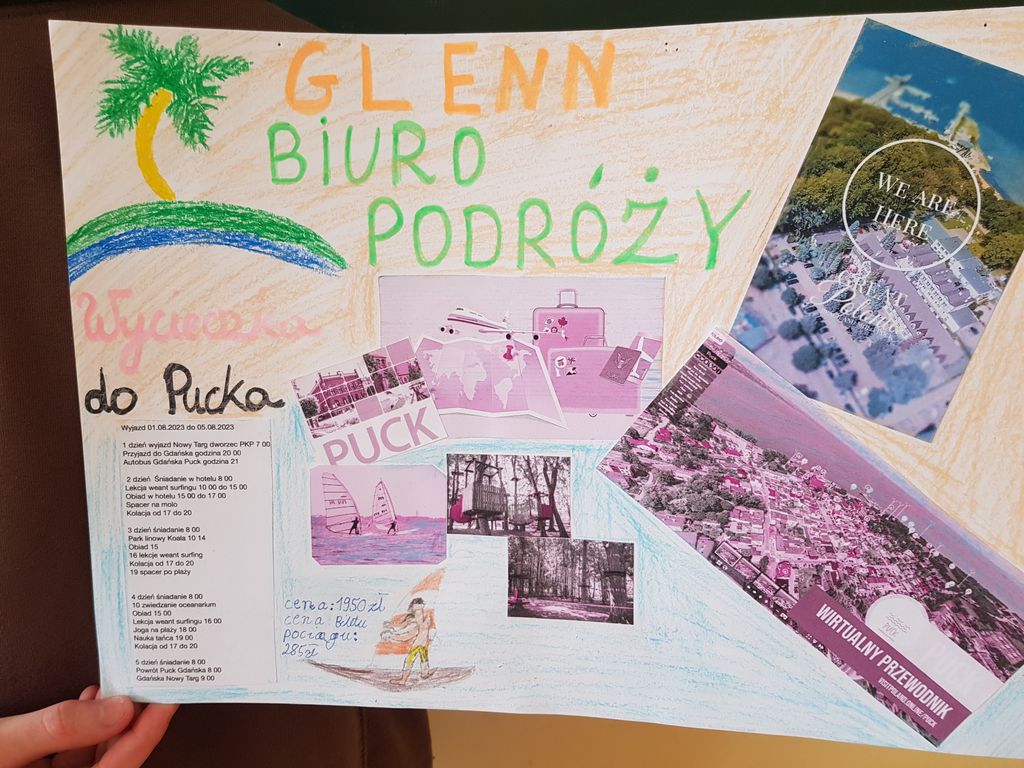 GLENN
BIURO
PODRÓŻY
Wycieczka
do Pucka
Wyjazd 01.08.2023 do 05.08.2023
1 dzień wyjazd Nowy Targ dworzec PKP 7 00
Przyjazd do Gdańska godzina 20 00
Autobus Gdańska Puck godzina 21
2 dzień Śniadanie w hotelu 8 00
Lekcja weant surfingu 10 00 do 15 00
Obiad w hotelu 15 00 do 17 00
Spacer na molo
Kolacja od 17 do 20
3 dzień śniadanie 8 00
Park linowy Koala 10 14
Obiad 15
16 lekcje weant surfing
Kolacja od 17 do 20
19 spacer po plaży
4 dzień śniadanie 8 00
10 zwiedzanie oceanarium
Obiad 15 00
Lekcja weant surfingu 16 00
Joga na plaży 18 00
Nauka tańca 19 00
Kolacja od 17 do 20
5 dzień śniadanie 8 00
Powrót Puck Gdańska 8 00
Gdańska Nowy Targ 9 00
PUCK
cena: 1950 zł
cena biletu
pociągu:
285zł
WE ARE
HERE
Puck
PUCK
WIRTUALNY PRZEWODNIK
VISITPOLAND.ONLINE/PUCK